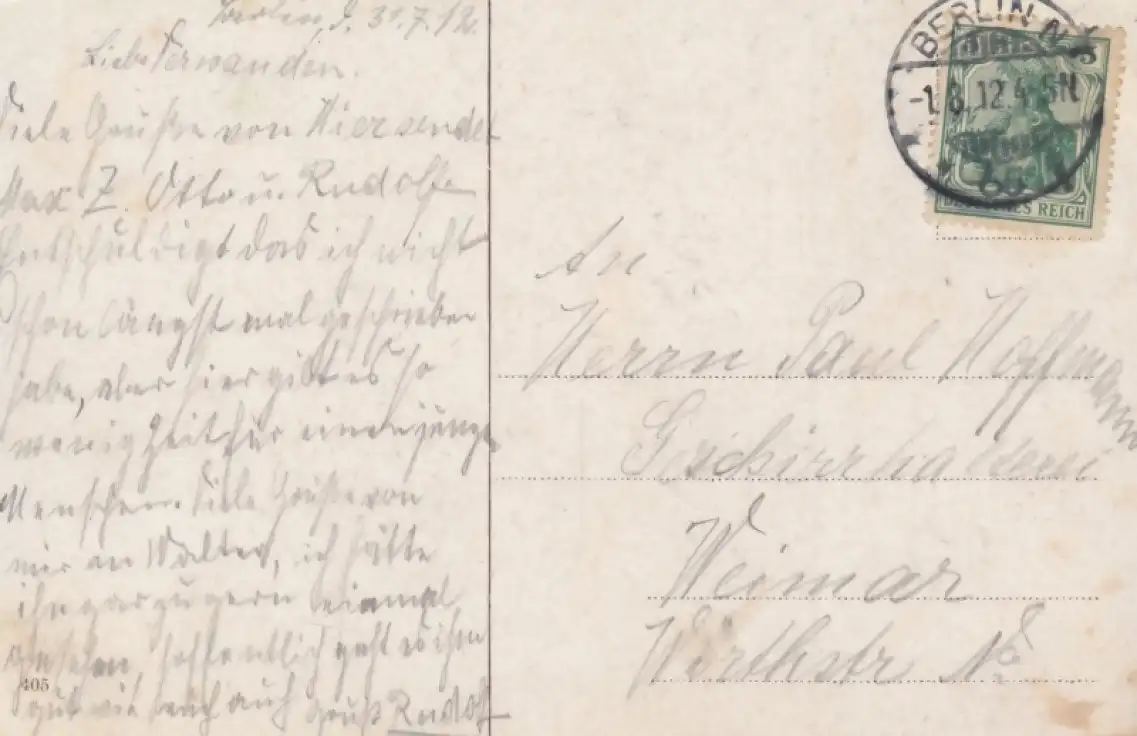 Berlin, d. 31.7.12.
Liebe Verwanden.
Viele Grüße von Hier sendet
Max Z. Otto u. Rudolf
Entschuldigt das ich nicht
schon längst mal geschrieben
habe, aber hier gibt es so
wenig Zeit für einen junge
Menschen. Viele Grüße von
mir an Walter, ich hätte
ihn gar zu gern einmal
gesehen, hoffentlich geht es ihm
gut wie euch auch Gruß Rudolf
405
BERLIN N.
-1.8.12.4-5N
65
5
DEUTSCHES REICH
An
Herrn Paul Hoffmann
Weimar
Wörthstr